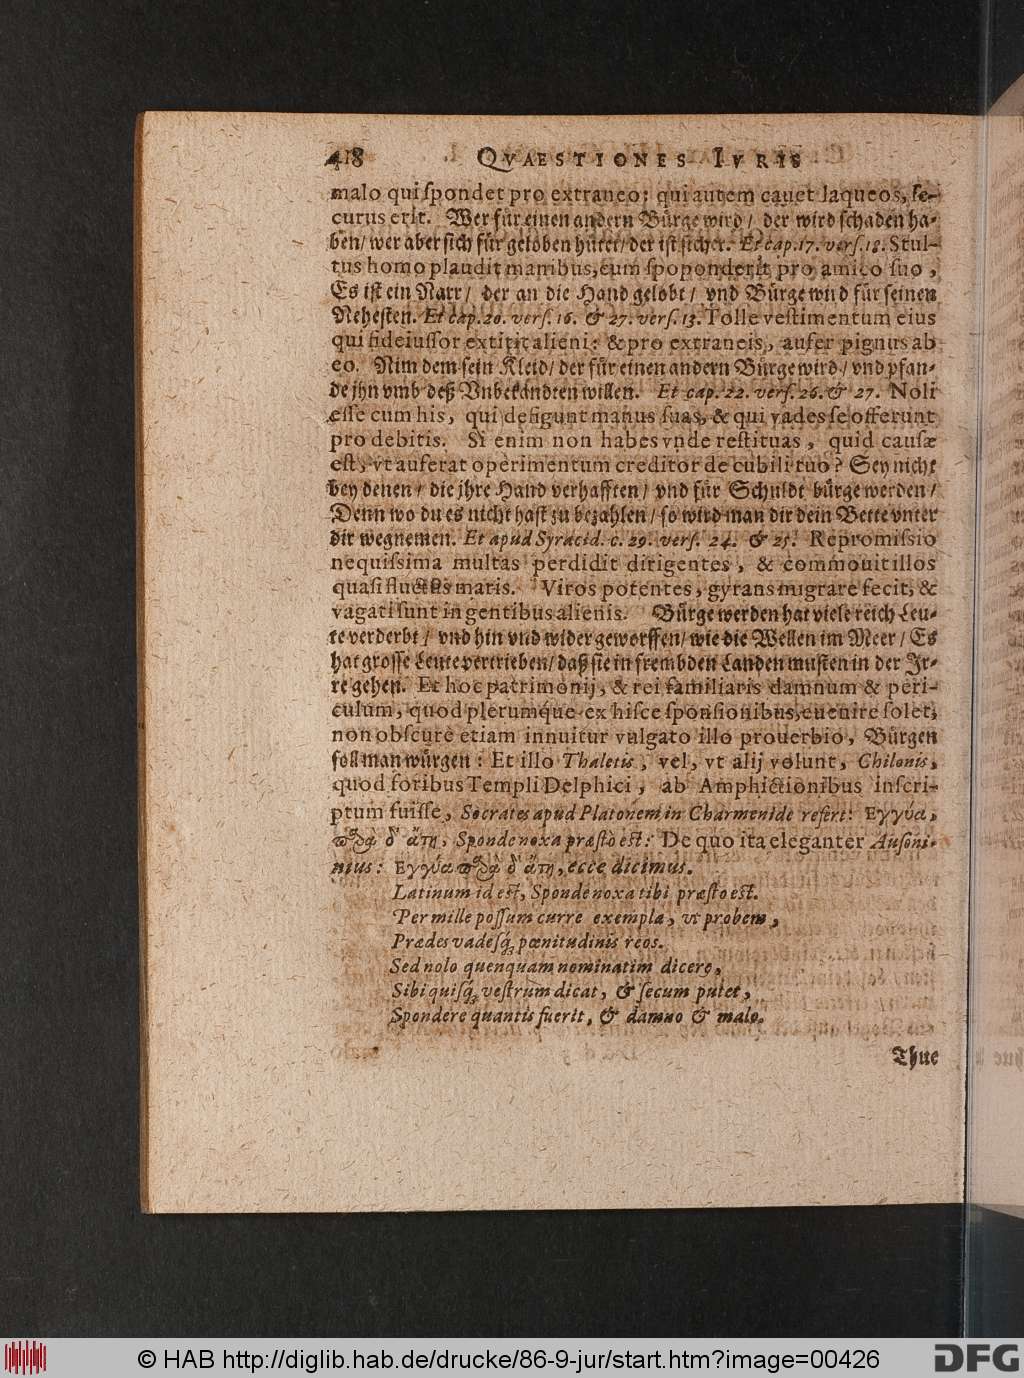 418 QVAESTIONES IVRIS
malo qui spondet pro extraneo: qui autem cavet laqueos, se-
curus erit. Wer für einen andern Bürge wird/ der wird schaden ha-
ben/ wer aber sich für geloben hütet/ der ist sicher. Et cap. 17. vers. 18. Stul-
tus homo plaudit manibus, cum spoponderit pro amico suo,
Es ist ein Narr/ der an die Hand gelobt/ vnd Bürge wird für seinen
Nehesten. Et cap. 20. vers. 16. & 27. vers. 13. Tolle vestimentum eius
qui fideiussor extitit alieni: & pro extraneis, aufer pignus ab
eo. Nim dem sein Kleid/ der für einen andern Bürge wird/ vnd pfan-
de jhn vmb deß Vnbekandten willen. Et cap. 22. vers. 26. & 27. Noli
esse cum his, qui defigunt manus suas, & qui vades se offerunt
pro debitis. Si enim non habes vnde restituas, quid causæ
est, vt auferat operimentum creditor de cubili tuo? Sey nicht
bey denen/ die jhre Hand verhafften/ vnd für Schuldt bürge werden/
Denn wo du es nicht hast zu bezahlen/ so wird man dir dein Bette vnter
dir wegnemen. Et apud Syracid. c. 29. vers. 24. & 25. Repromissio
nequissima multas perdidit dirigentes, & commouit illos
quasi fluctus maris. Viros potentes, gyrans migrare fecit, &
vagati sunt in gentibus alienis. Bürge werden hat viele reich Leu-
te verderbt/ vnd hin vnd wider geworffen/ wie die Wellen im Meer/ Es
hat grosse Leute vertrieben/ daß sie in frembden Landen musten in der Jr-
re gehen. Et hoc patrimonij, & rei familiaris damnum & peri-
culum, quod plerumque ex hisce sponsionibus, euenire solet,
non obscurè etiam innuitur vulgato illo prouerbio, Bürgen
soll man würgen: Et illo Thaletis, vel, vt alij volunt, Chilonis,
quod foribus Templi Delphici, ab Amphictionibus inscri-
ptum fuisse, Socrates apud Platonem in Charmenide refert: Εγγύα,
πάρα δ' ἄτη, Sponde noxa præstò est: De quo ita eleganter Ausoni-
nius: Εγγύα πάρα δ' ἄτη, ecce dicimus.
Latinum id est, Sponde noxa tibi præsto est.
Per mille possum curre exempla, vt probem,
Prædes vadesq́; pœnitudinis reos.
Sed nolo quenquam nominatim dicere,
Sibi quisq́; vestrum dicat, & secum putet,
Spondere quantis fuerit, & damno & malo.
Thue
© HAB http://diglib.hab.de/drucke/86-9-jur/start.htm?image=00426
DFG